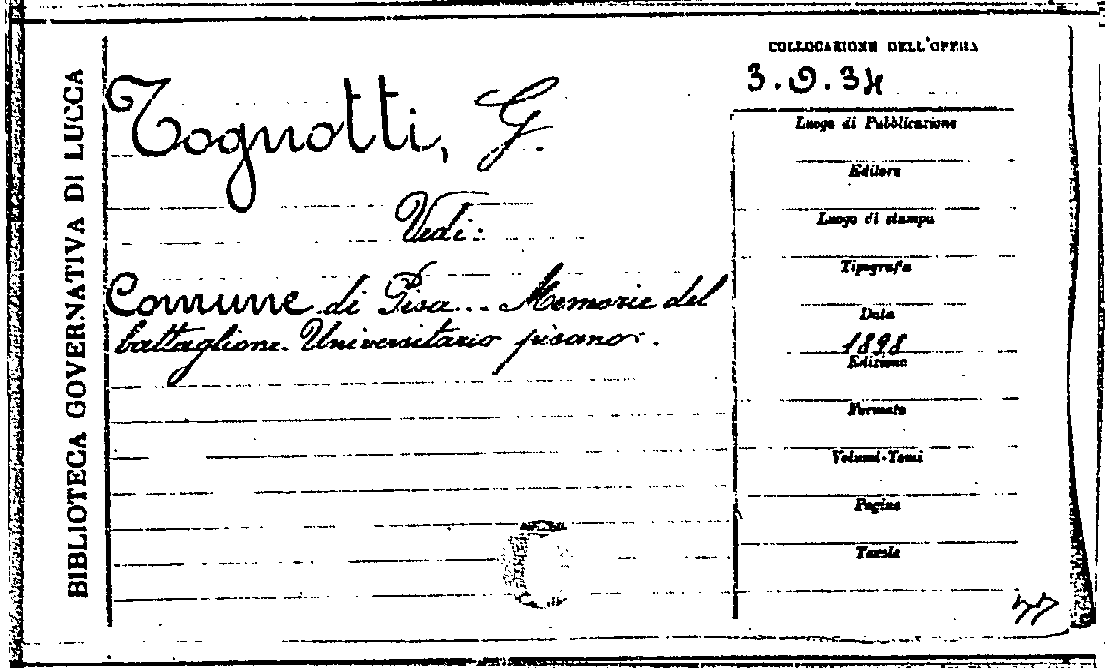 BIBLIOTECA GOVERNATIVA DI LUCCA
Tognotti, G.
Vedi:
Comune di Pisa... Memorie del
battaglione Universitario pisano.
COLLOCAZIONE DELL'OPERA
3.O.34
Luogo di Pubblicazione
Editore
Luogo di stampa
Tipografo
Data
1898
Edizione
Formato
Volumi-Tomi
Pagine
Tavole